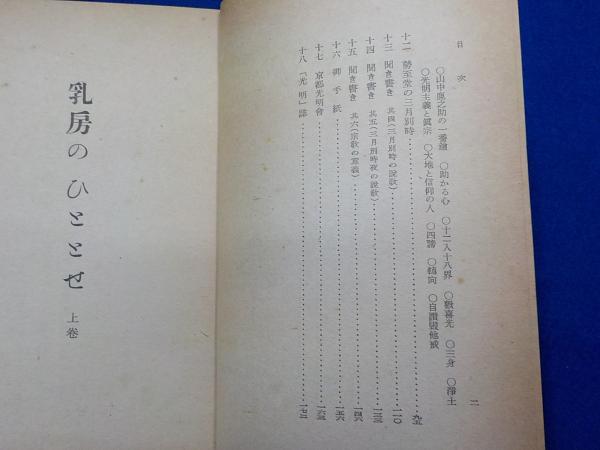 目次
二
〇山中鹿之助の一番鎗 〇助かる心 〇十二入十八界 〇歡喜光 〇三身 〇淨土
〇光明主義と眞宗 〇大地と信仰の人 〇四諦 〇廻向 〇自讃毀他戒
十二 勢至堂の三月別時……九五
十三 聞き書き 其四(三月別時の說敎)……一一〇
十四 聞き書き 其五(三月別時夜の說敎)……一三三
十五 聞き書き 其六(宗敎の意義)……一四六
十六 御手紙……一五六
十七 京都光明會……一六三
十八 「光明」誌……一七二
乳房のひととせ
上卷